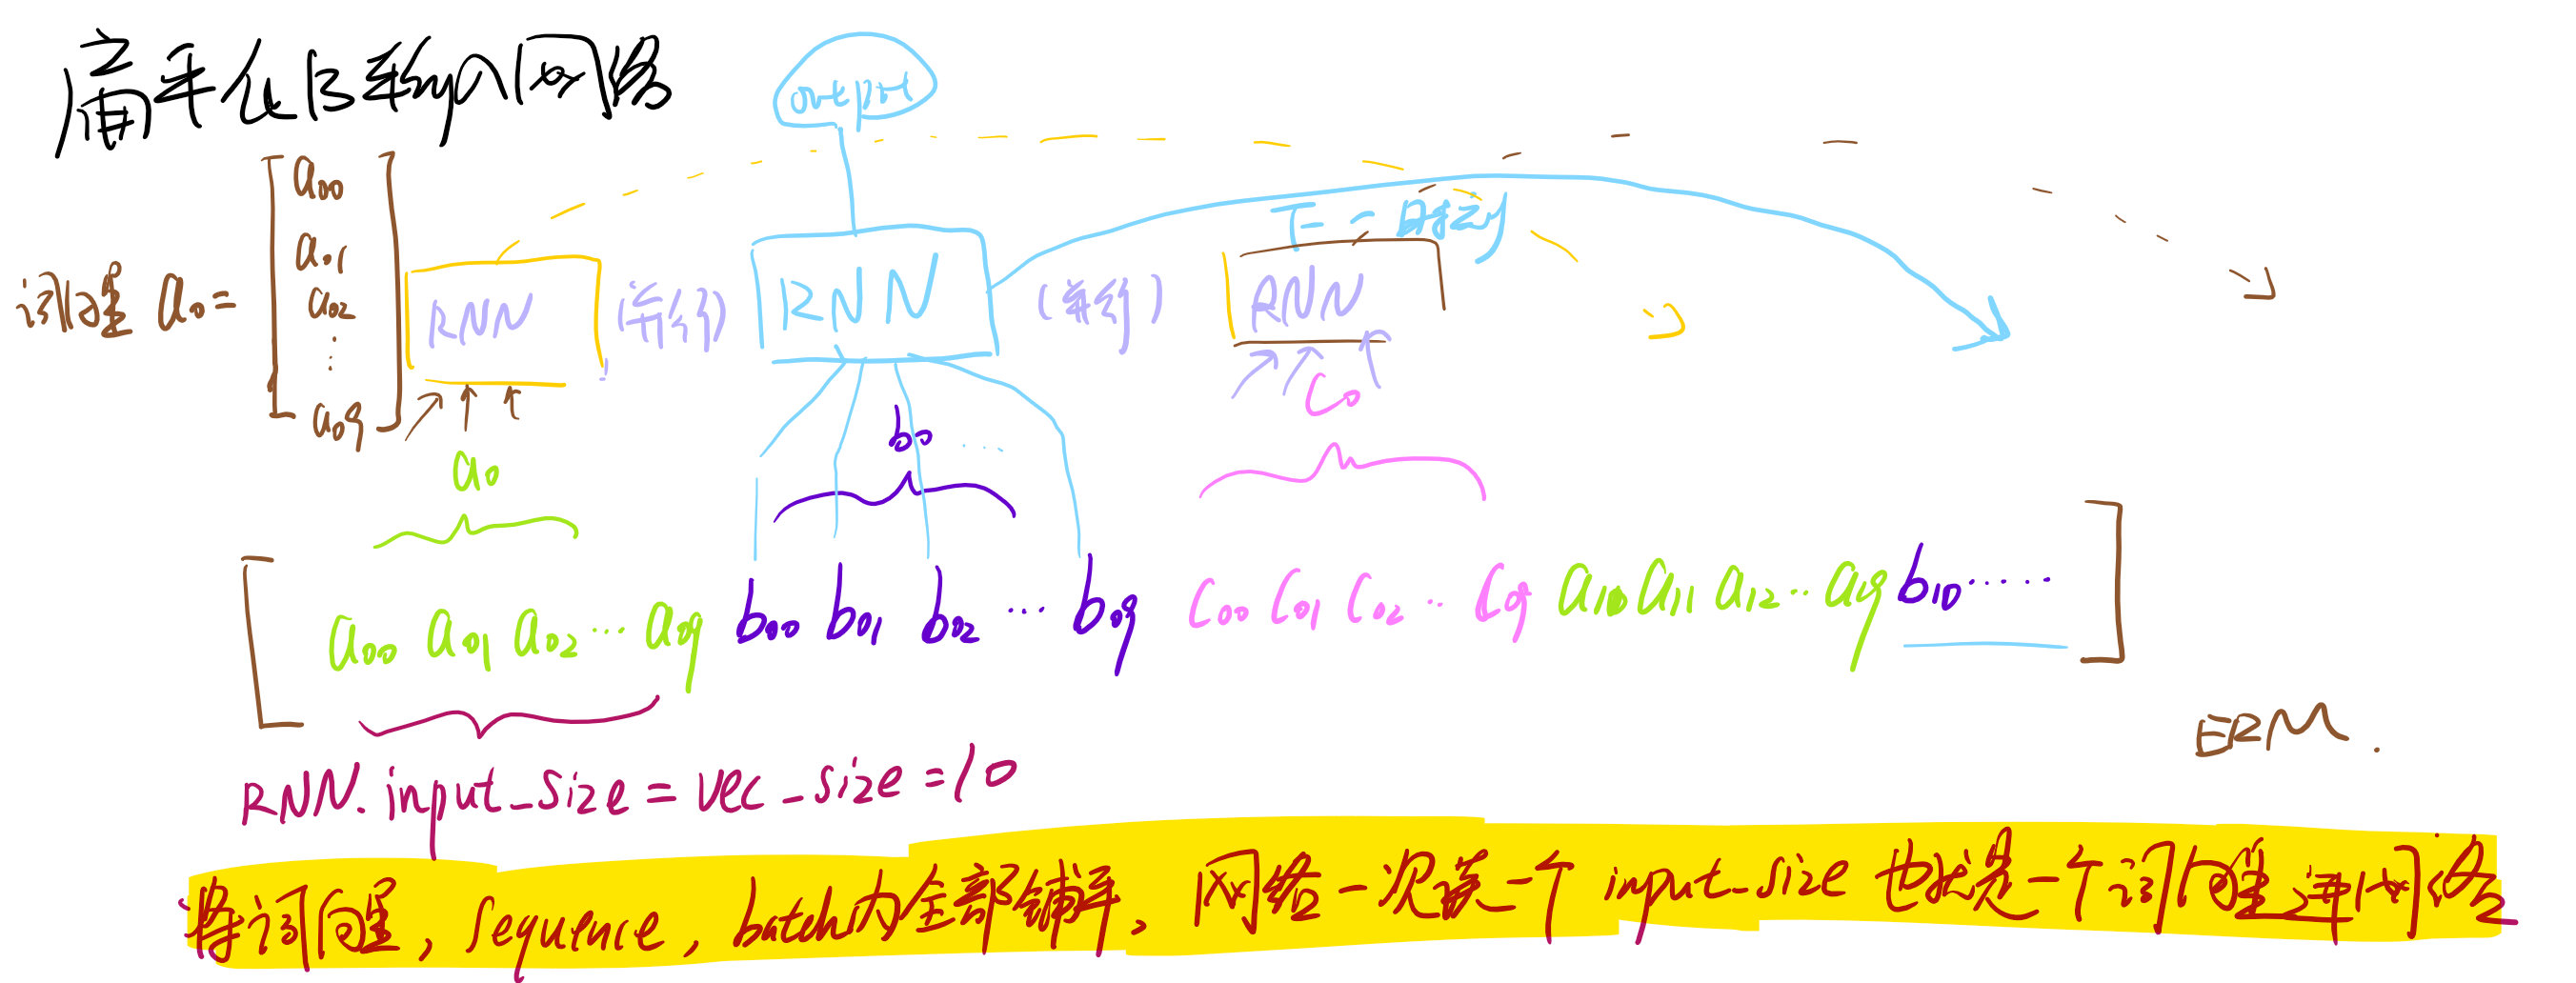 扁平化后输入网络
output
下一时刻
词向量 a₀ = [a₀₀ a₀₁ a₀₂ ⋮ a₀₉]
RNN (并行) RNN (并行) RNN
a₀ b₀ ... c₀
[a₀₀ a₀₁ a₀₂ ... a₀₉ b₀₀ b₀₁ b₀₂ ... b₀₉ c₀₀ c₀₁ c₀₂ .. c₀₉ a₁₀ a₁₁ a₁₂ .. a₁₉ b₁₀ ......]
RNN. input_size = vec_size = 10
将词向量, sequence, batch内全部铺平。网络一次读一个 input_size 也就是一个词向量进网络